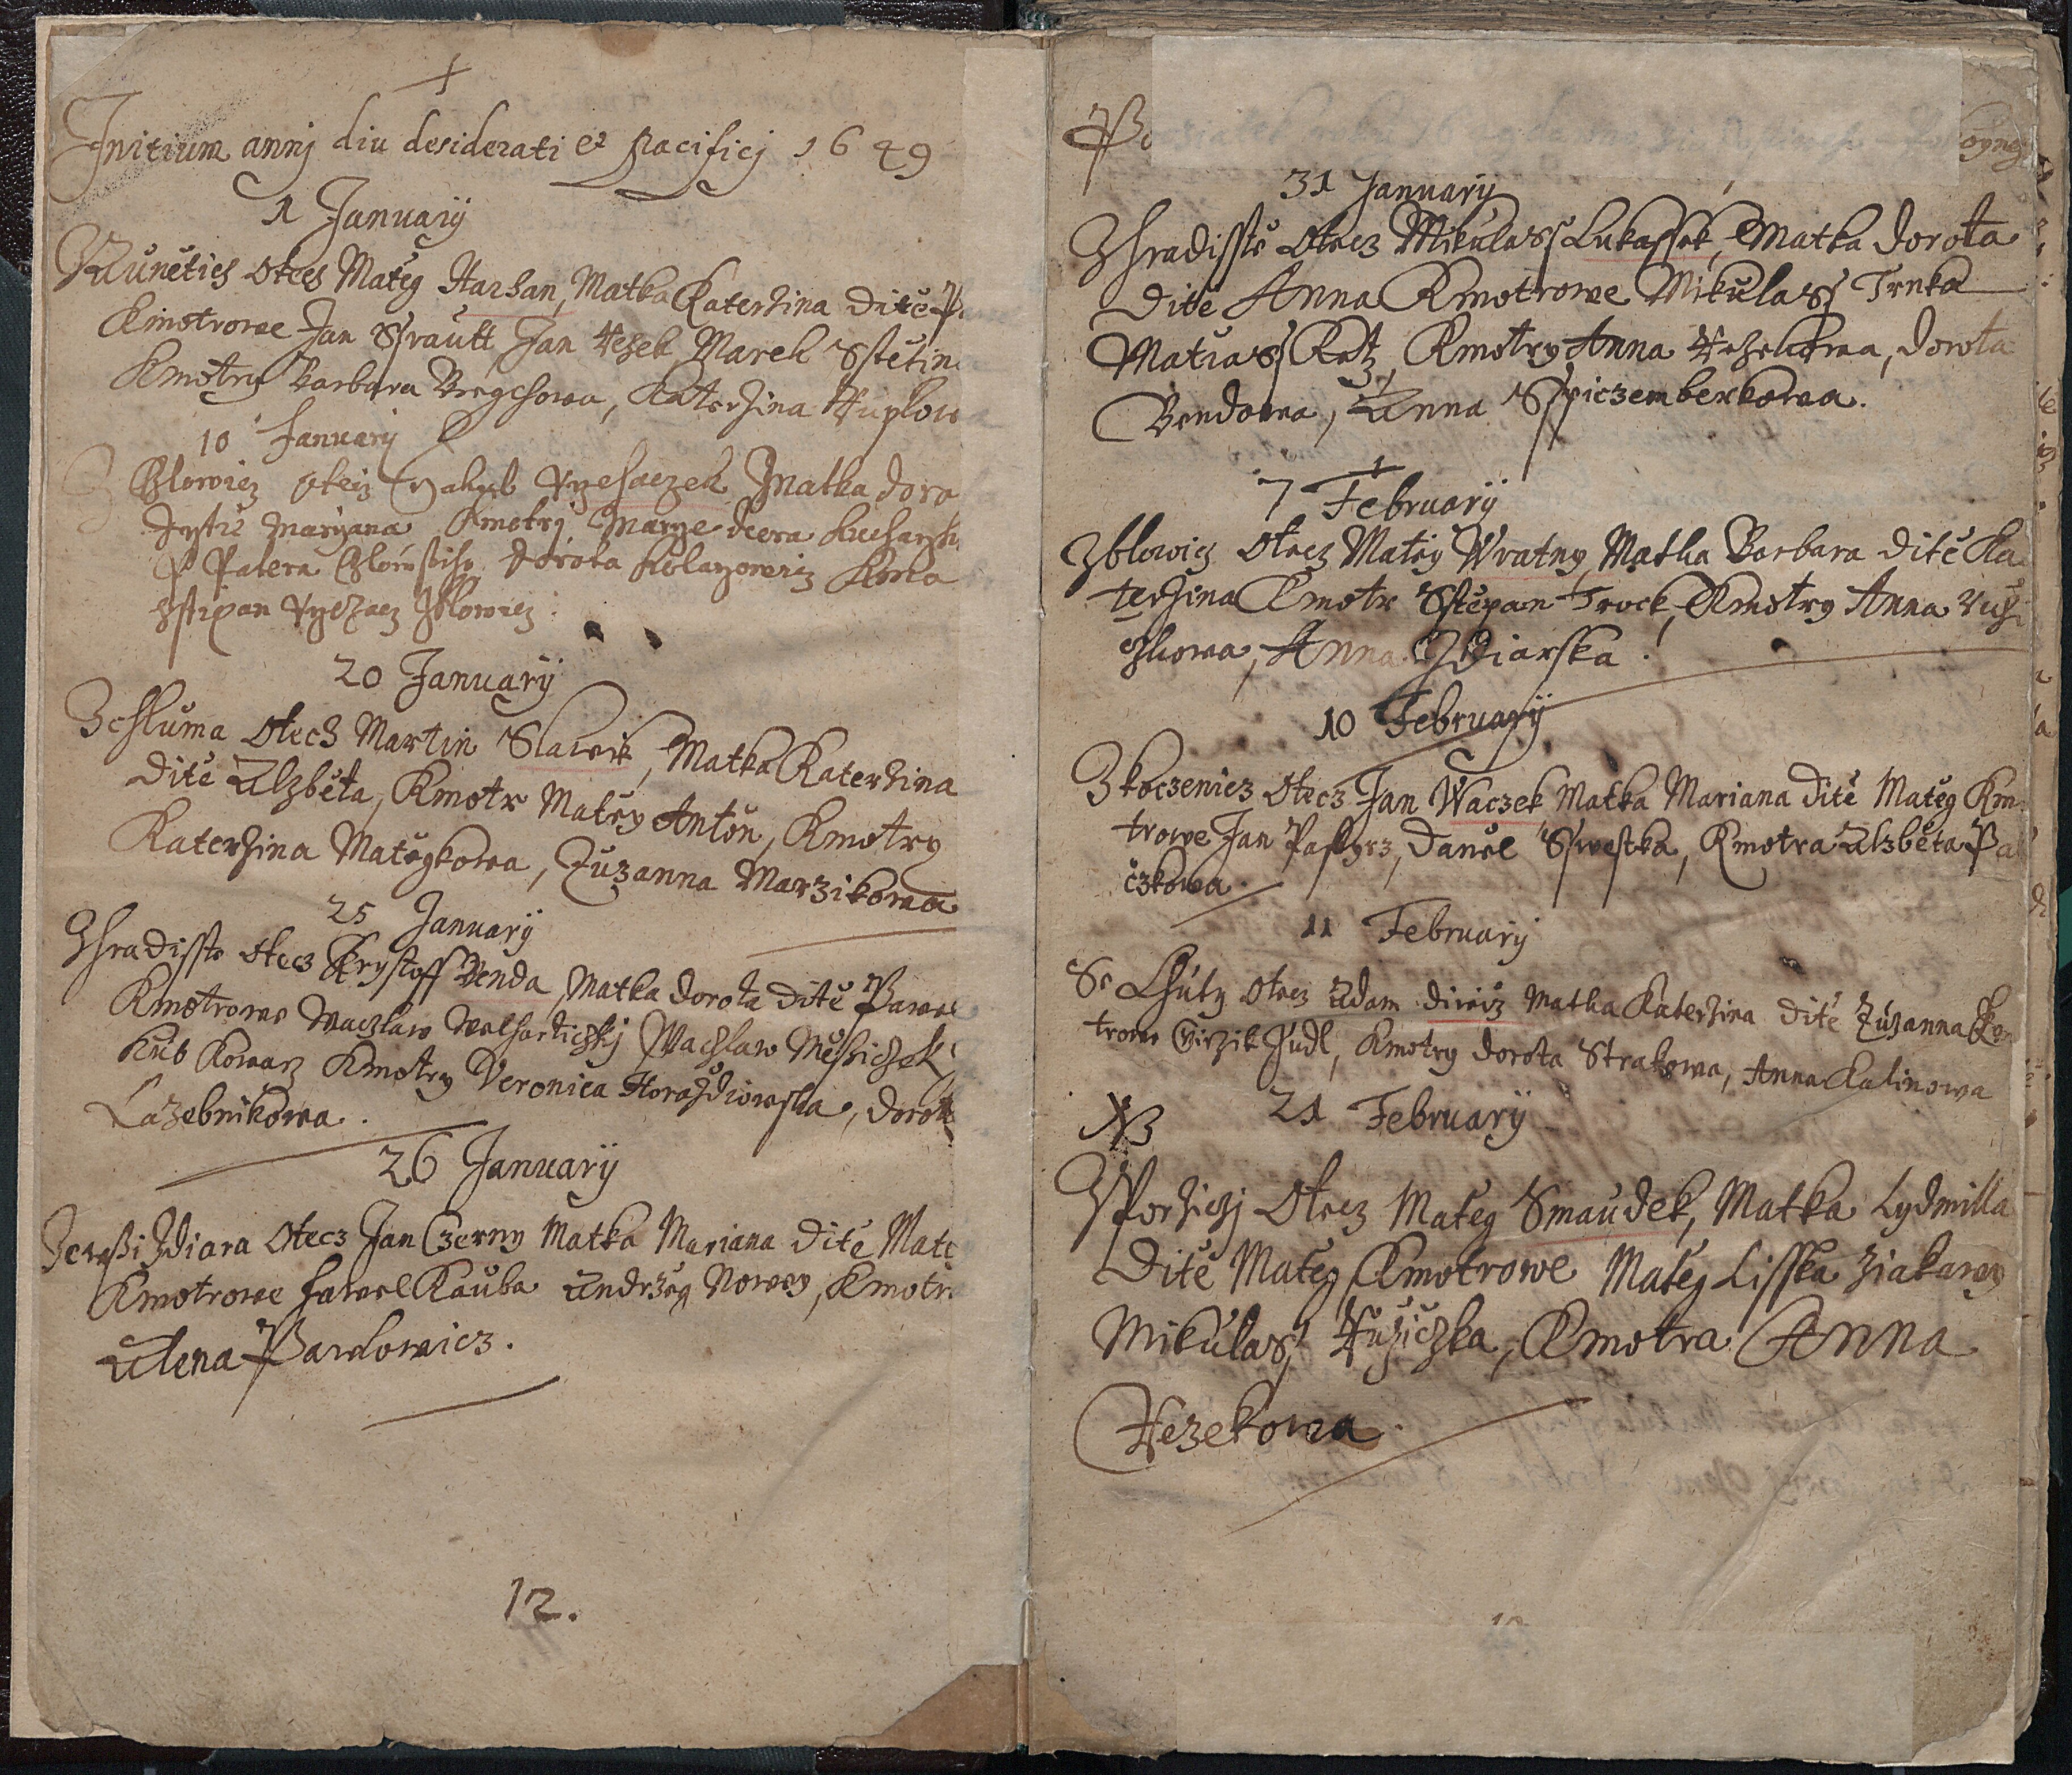 Initium annj diu desiderati et pacificj 1649
1 Januarij
Kunětich otecz Matěg Harhan, Matka Katerzina ditě
Kmotrowe Jan Ssrautt Jan Hezek Marek Sstětin
Kmotry Barbara, Katerzina Huplow
10 January
Zblowicz otecz Jakub Matka doro
dytie Maryana Kmotrj Marye dcera
P Patera dorota
Sstipan Zblowicz
20 Januarij
Z Chluma Otecz Martin Slawik, Matka Katerzina
ditě Alzběta, Kmotr Matěy Anton, Kmotry
Katerzina Matěgkowa, Zuzanna Marzikowa
25 Januarij
Zhradisste otecz Krystoff Benda, Matka dorota ditě Pawel
Kmotrowe Waczlaw Waczlaw Měssiczek
kub Kowarz Kmotry Veronica Horazdiowska, dorot
Lazebnikowa.
26 Januarij
Zdiara Otecz Jan Czerny Matka Mariana ditě Mate
Kmotrowe Hawel Kauba Andrzeg Nowey, Kmotr
Alena Pawlowicz.
12.
31 Januarij
Zhradisste Otecz Mikulass Lukassek, Matka dorota
ditě Anna Kmotrowe Mikulass Trnka
Matiass Kotz, Kmotry Anna Hezekowa, dorota
Bendowa, Anna Sspiczemberkowa.
7 Februarij
Zblowicz Otecz Matěy Wratny, Matka Barbara ditě Ka
terzina Kmotr Sstěpan Trock, Kmotry Anna
Anna Zdiarska.
10 Februarij
Z koczenicz Otecz Jan Waczek Matka Mariana ditě Matěg Km
trowe Jan Pastyrz, Daniel Sswestka, Kmotra Alzběta Pa
czkowa.
11 Februarij
Se Lhuty Otecz Adam diwiz Matka Katerzina ditě Zuzanna Kmo
trowe Girzik Judl, Kmotry dorota Strakowa, Anna Kalinowa
NB 21 Februarij
Zporziczj Otecz Matěg Smaudek, Matka Lydmilla
Ditě Matěg Kmotrowe Matěg Lisska ziakawy
Mikulass Huziczka, Kmotra Anna
Hezekowa.